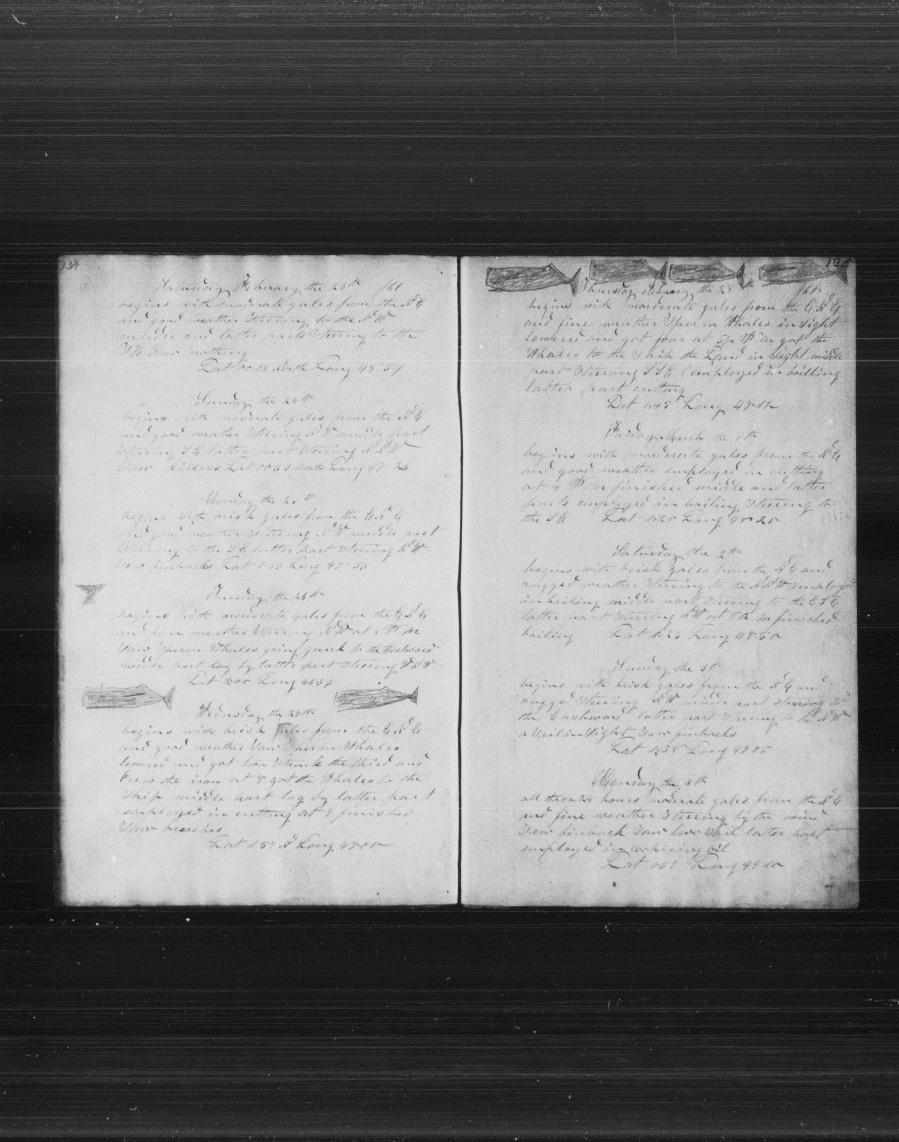 134
Saturday February the 23th 1861
begins with moderate gales from the N E
and good weather Steering to the N W
middle and latter parts Steering to the
Saw nothing
Lat 00 18 North Long 48-51
Sunday the 24th
begins with moderate gales from the N E
and good weather Steering N W middle part
Steering S E latter part Steering N W
Saw Killers Lat 00 53 North Long 47-26
Monday the 25th
begins with brisk gales from the E N E
and good weather Steering N W middle part
Steering to the S E latter part Steering N W
Saw finbacks Lat 1-50 Long 47-55
Tuesday the 26th
begins with moderate gales from the E N E
and fine weather Steering N W at P M
Saw Sperm Whales going quick to the Westward
middle part lay by latter part Steering
Lat Long
Wednsday the 27th
begins with brisk gales from the E N E
and good weather Saw Sperm Whales
lowered and got two Struck the third and
the iron at 8 got the Whales to the
Ship middle part lay by latter part
employed in cutting at finished
Saw
Lat 1 59 N Long 47-00
135
Thursday February the 28th 1861
begins with moderate gales from the E N E
and fine weather Sperm Whales in Sight
lowered and got four at P M got the
Whales to the Ship the Land in Sight middle
part Steering S S E employed in boilling
latter part cutting
Lat Long
Friday March the 1th
begins with moderate gales from the N E
and good weather employed in cutting
at P M finished middle and latter
parts employed in boiling Steering to
the S E Lat Long 48-20
Saturday the 2th
begins with brisk gales from the N E and
rugged weather Steering to the employed
in boiling middle part Steering to the E S E
latter part Steering N W at 8 A M finished
boiling Lat Long 48-50
Sunday the 3th
begins with brisk gales from the N E and
rugged Steering N W middle part Steering to
the Eashward latter part Steering to the N W
a Sail in Sight Saw finbacks
Lat 1 38 Long 49 05
Monday the 4th
all these 24 hours moderate gales from the N E
and fine weather Steering by the wind
Saw finback Saw latter part
employed in coopering oil
Lat Long